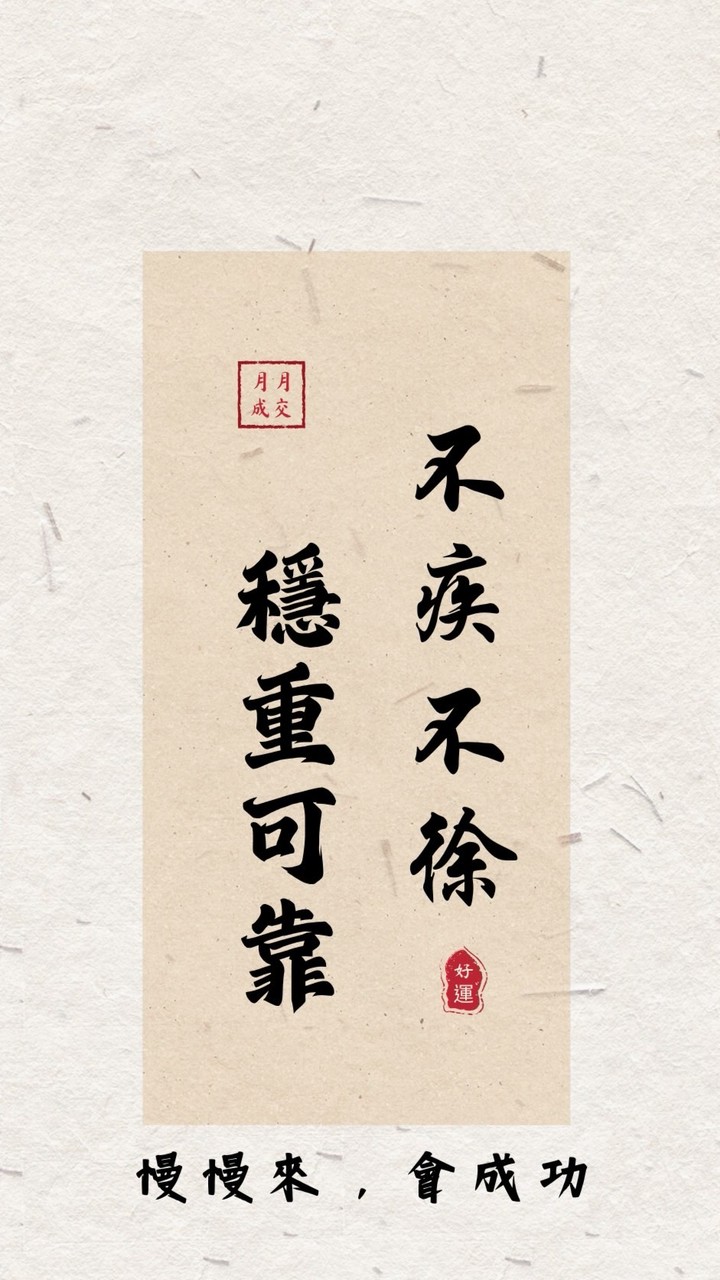 不疾不徐
好運
月月
成交
穩重可靠
慢慢來，會成功